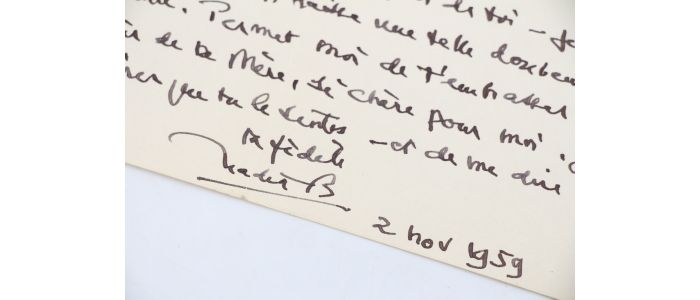 de toi - Je
une telle douleur
Permet moi de t'embrasser
de ta Mère, si chère pour moi
que tu le sentes - et de me dire
ta fidèle
Nadia B
2 nov 1959